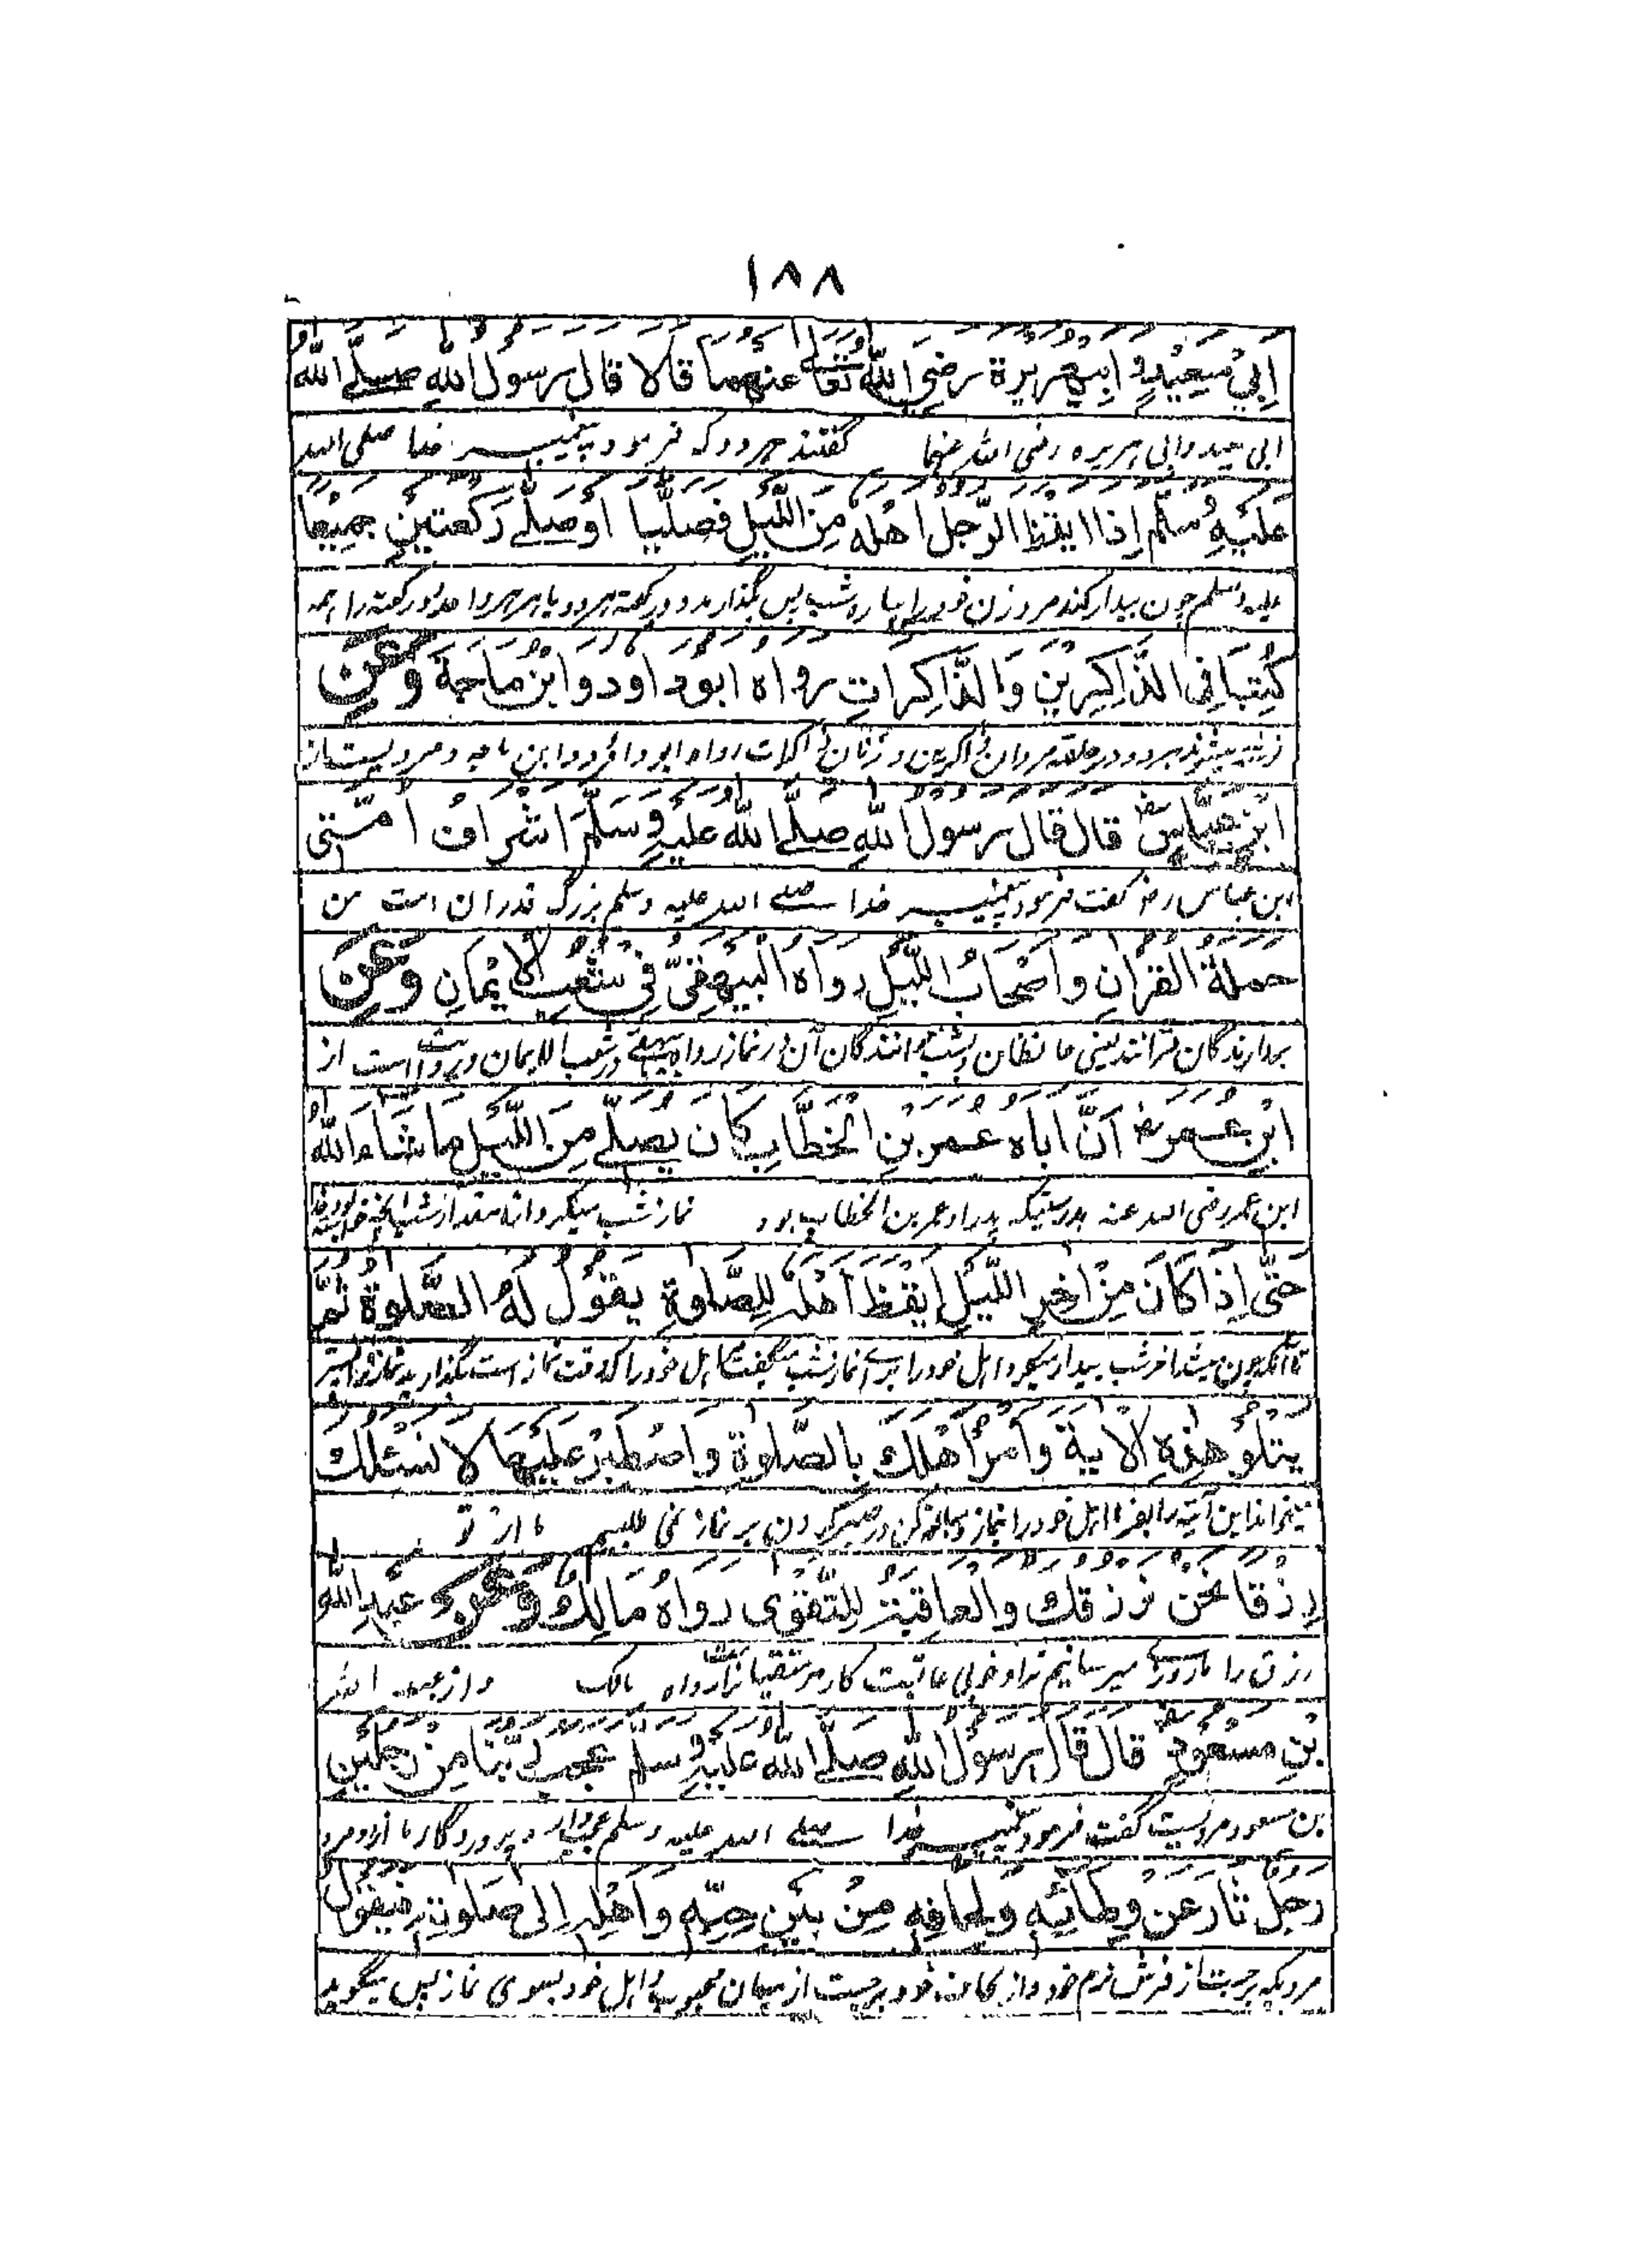 ١٨٨
اِبِيْ سَعِيْدٍ وَ اَبِيْهُرَيْرَةَ رَضِيَ اللّٰهُ تَعَالٰى عَنْهُمَا قَالَا قَالَ رَسُوْلُ اللّٰهِ صَلَّے اللّٰهُ
ابی سعید وابی هریره رضی اللّٰه عنهما گفتند هر دو که فرمود پیغمبر خدا صلی الله
عَلَيْهِ وَسَلَّمَ اِذَا اَيْقَظَ الرَّجُلُ اَهْلَهُ مِنَ اللَّيْلِ فَصَلَّيَا اَوْ صَلّٰے رَكْعَتَيْنِ جَمِيْعًا
علیه وسلم چون بیدار کند مرد زن خود را شب پس بگذارند دو رکعت هر دو یا هر
كُتِبَا فِي الذَّاكِرِيْنَ وَالذَّاكِرَاتِ رواه ابوداود وَابْنُ مَاجَةَ وَعَنِ
هر دو در حلقه مردان ذاکرین و زنان ذاکرات رواه ابو داؤد وابن ماجه و مرویست از
ابْنِ عَبَّاسٍ رض قَالَ قَالَ رَسُوْلُ اللّٰهِ صَلَّے اللّٰهُ عَلَيْهِ وَسَلَّمَ اَشْرَافُ اُمَّتِی
ابن عباس رض گفت فرمود پیغمبر خدا صلے الله علیه وسلم بزرگ قدران امت من
حَمَلَةُ الْقُرْاٰنِ وَاَصْحَابُ اللَّيْلِ رَوَاهُ الْبَيْهَقِيُّ فِيْ شُعَبِ الْاِيْمَانِ وَعَنِ
بردارندگان قرانند یعنی حافظان و خوانندگان آن در نماز رواه در شعب الایمان است از
ابْنِ عُمَرَ رض اَنَّ اَبَاهُ عُمَرَ بْنَ الْخَطَّابِ كَانَ يُصَلِّے مِنَ اللَّيْلِ مَا شَاءَ اللّٰهُ
ابن عمر رضی الله عنه بدرستیکه پدر او عمر بن الخطاب بود نماز شب میکرد
حَتّٰى اِذَا كَانَ مِنْ اٰخِرِ اللَّيْلِ اَيْقَظَ اَهْلَهُ لِلصَّلٰوةِ يَقُوْلُ لَهُ الصَّلٰوةُ ثُمَّ
تا آنکه چون اخر شب بیدار میکرد اهل خود را نماز شب میگفت اهل خود را که وقت نماز است
يَتْلُوْ هٰذِهِ الْاٰيَةَ وَاْمُرْ اَهْلَكَ بِالصَّلٰوةِ وَاصْطَبِرْ عَلَيْهَا لَا نَسْئَلُكَ
میخواند این آیته را بفرما اهل خود را نماز در صبر کردن بر نماز نمی طلبیم ما از تو
رِزْقًا نَحْنُ نَرْزُقُكَ وَالْعَاقِبَةُ لِلتَّقْوٰى رَوَاهُ مَالِكٌ وَعَنْ عَبْدِ اللّٰهِ
رزق را میرسانیم ترا و خوبی عاقبت کار مر متقیان رواه مالک و از عبد اللّٰه
بْنِ مَسْعُوْدٍ رض قَالَ قَالَ رَسُوْلُ اللّٰهِ صَلَّے اللّٰهُ عَلَيْهِ وَسَلَّمَ عَجِبَ رَبُّنَا مِنْ رَجُلَيْنِ
بن مسعود مرویست گفت فرمود پیغمبر خدا صلے الله علیه وسلم پروردگار ما از دو مرد
رَجُلٌ ثَارَ عَنْ وِطَائِهِ وَلِحَافِهِ مِنْ بَيْنِ حِبِّهِ وَاَهْلِهِ اِلٰى صَلٰوتِهِ فَيَقُوْلُ
مردیکه برجست از فرش نرم خود و از لحاف خود برجست از میان محبوب و اهل خود بسوی نماز پس میگوید